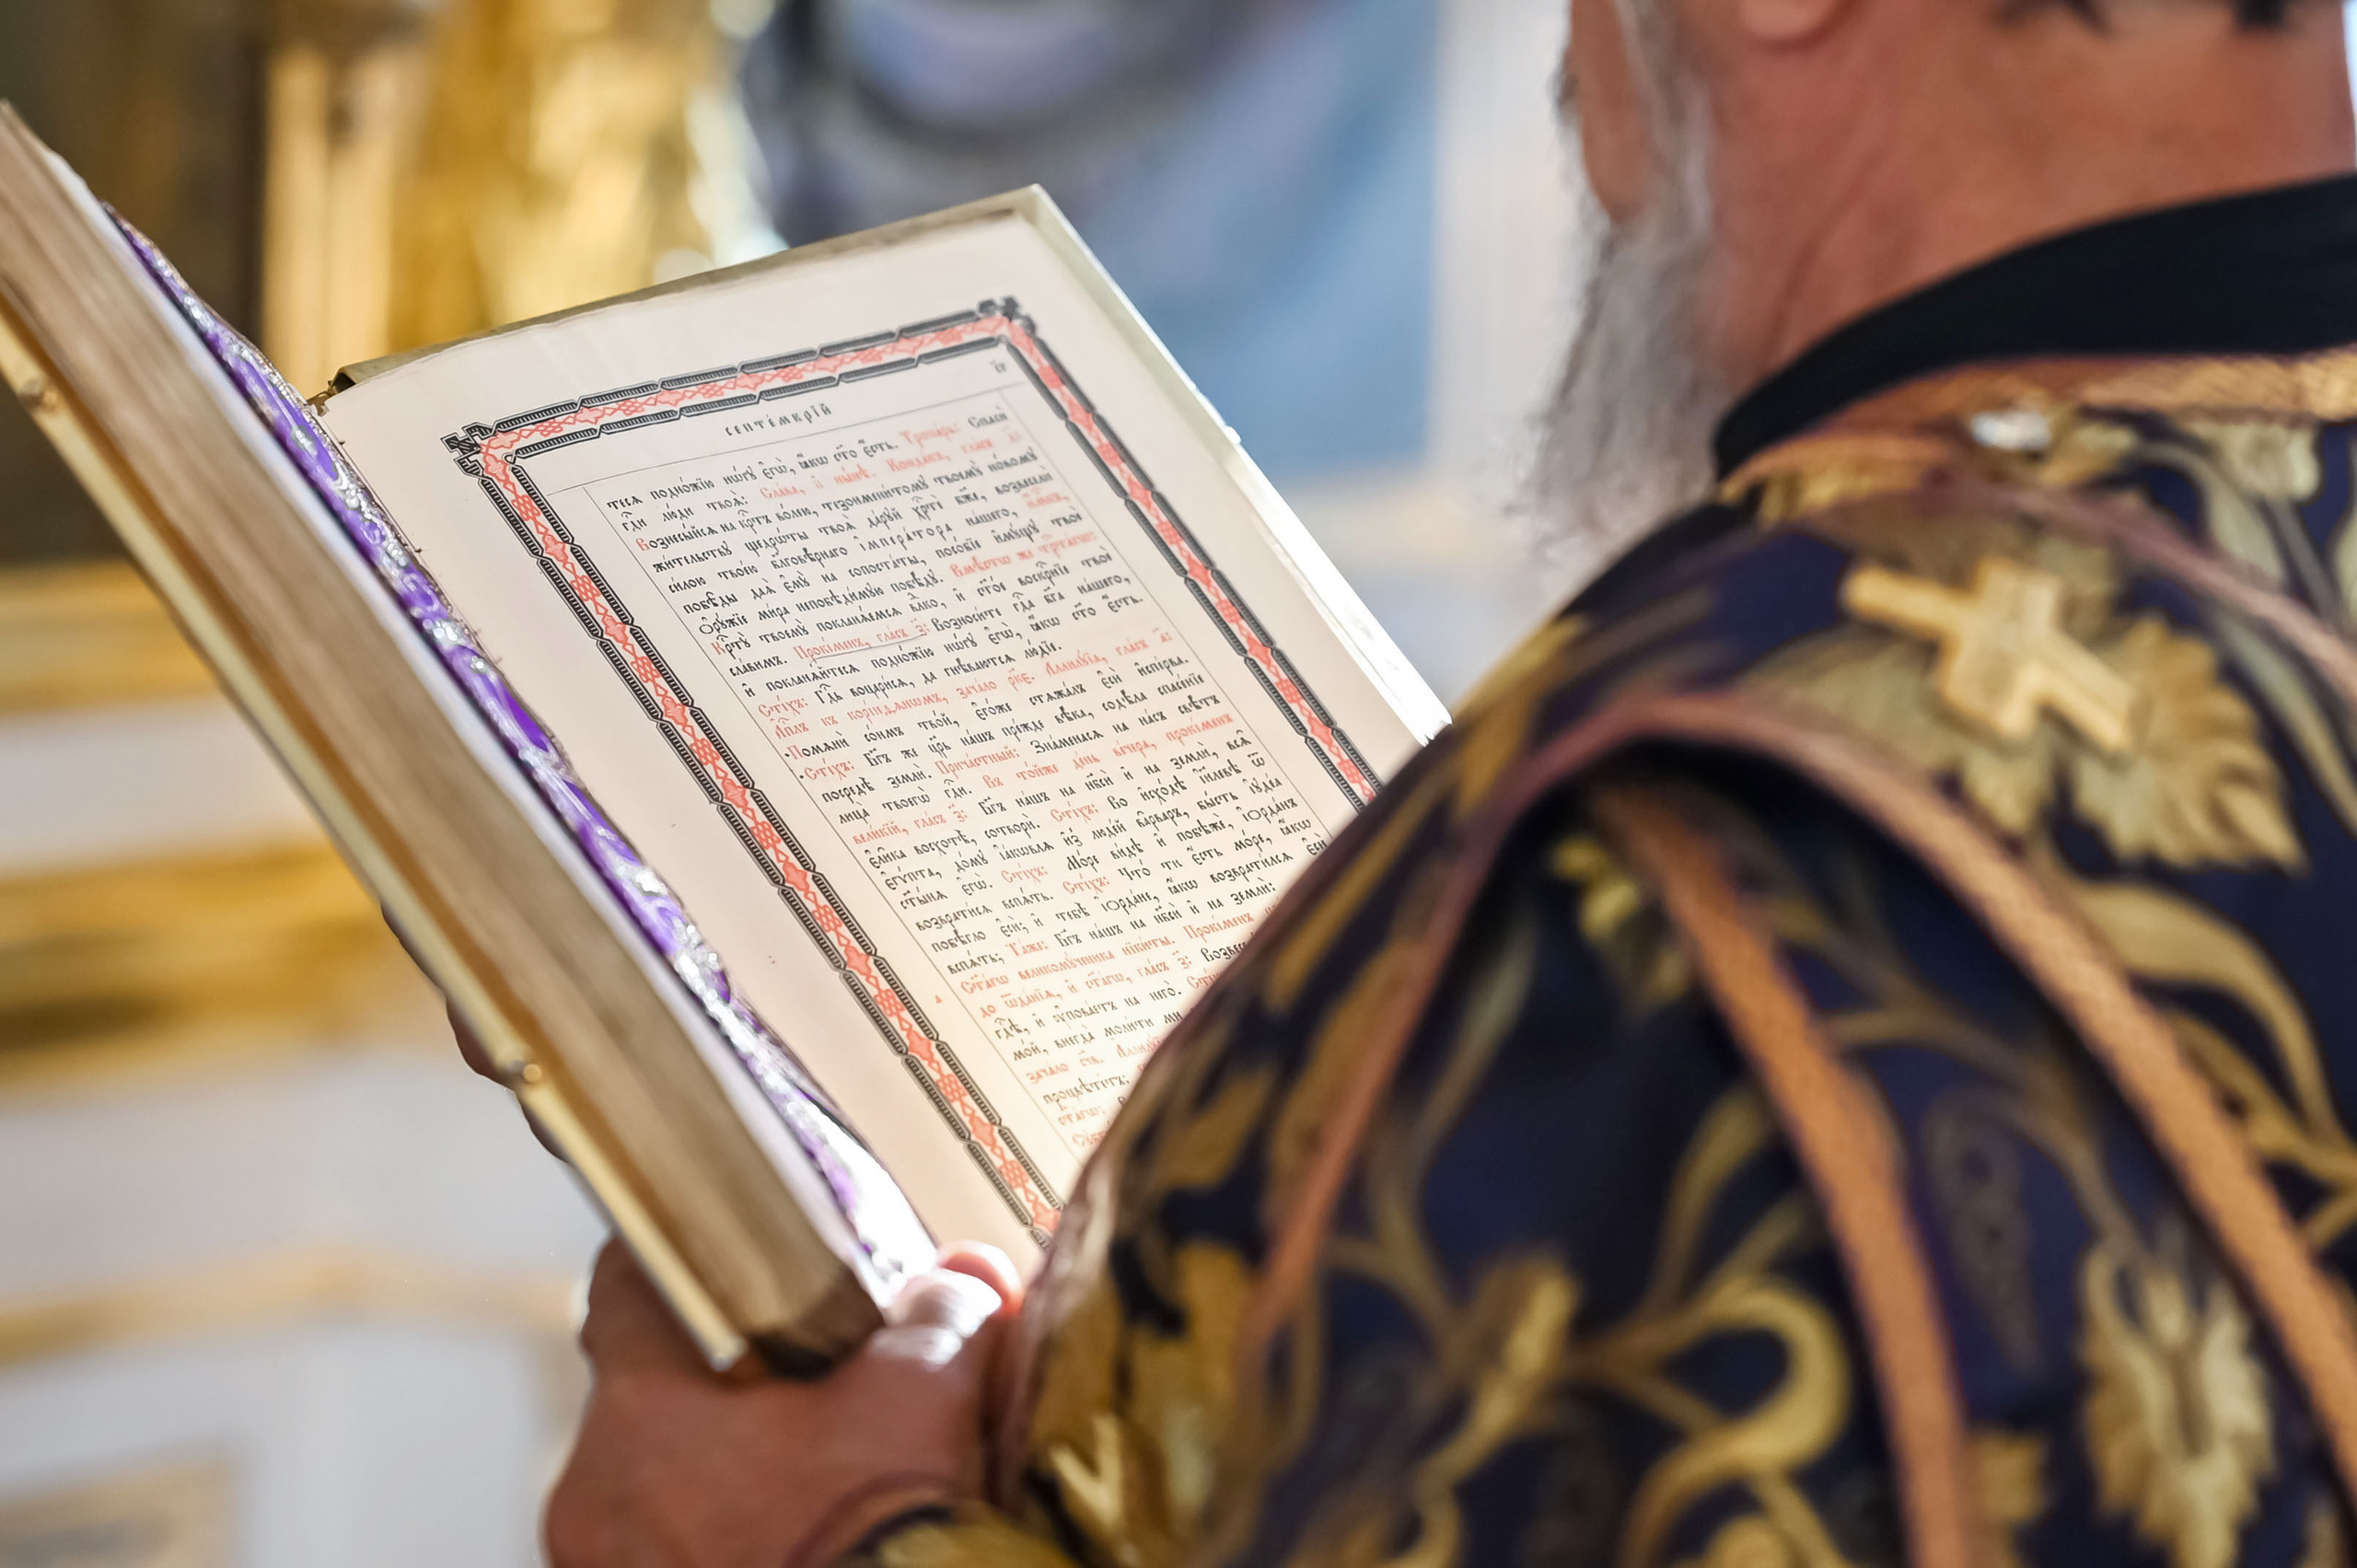 септе́мврїй
тесѧ подно́жїю но́гꙋ є҆гѡ̀, ꙗ҆́кѡ ст҃о є҆́сть. Тропа́рь: Спасѝ
гдⷭ҇и лю́ди твоѧ̑: Сла́ва, и҆ ны́нѣ. Конда́къ, гла́съ д҃:
Вознесы́йсѧ на крⷭ҇тъ во́лею, тезоимени́томꙋ твоемꙋ̀ но́вомꙋ
жи́тельствꙋ щедрѡ́ты твоѧ̑ да́рꙋй хрⷭ҇тѐ бж҃е, возвеселѝ
си́лою твое́ю бл҃говѣ́рнаго і҆мпера́тора на́шего,
побѣ̑ды даѧ̀ є҆мꙋ̀ на сопоста́ты, посо́бїе и҆мꙋ́щꙋ твоѐ
Ѻ҆рꙋ́жїе ми́ра непобѣди́мꙋю побѣ́дꙋ. Вмѣ́стѡ же трист҃а́гѡ:
Крⷭ҇тꙋ̀ твоемꙋ̀ покланѧ́емсѧ влⷣко, и҆ ст҃о́е воскрⷭ҇нїе твоѐ
сла́вимъ. Прокі́менъ, гла́съ з҃: Возноси́те гдⷭ҇а бг҃а на́шего,
и҆ покланѧ́йтесѧ подно́жїю но́гꙋ є҆гѡ̀, ꙗ҆́кѡ ст҃о є҆́сть.
Сті́хъ: Гдⷭ҇ь воцари́сѧ, да гнѣ́ваютсѧ лю́дїе.
А҆пⷭ҇лъ къ корі́нѳѧнѡмъ, зача́ло рк҃е. А҆ллилꙋ́їа, гла́съ а҃:
Помѧнѝ со́нмъ тво́й, є҆го́же стѧжа́лъ є҆сѝ и҆спе́рва.
Сті́хъ: Бг҃ъ же цр҃ь на́шъ пре́жде вѣ́ка, содѣ́ла спасе́нїе
посредѣ̀ землѝ. Прича́стный: Зна́менасѧ на на́съ свѣ́тъ
лица̀ твоегѡ̀ гдⷭ҇и. Въ то́йже де́нь ве́чера, прокі́менъ
вели́кїй, гла́съ з҃: Бг҃ъ на́шъ на нб҃сѝ и҆ на землѝ, всѧ̑
є҆ли̑ка восхотѣ̀, сотворѝ. Сті́хъ: Во и҆схо́дѣ і҆и҃левѣ ѿ
є҆гѵ́пта, до́мꙋ і҆а́кѡвлѧ и҆з̾ люді́й ва̑рваръ, бы́сть і҆ꙋде́а
ст҃ы́нѧ є҆гѡ̀. Сті́хъ: Мо́ре ви́дѣ и҆ побѣжѐ, і҆ѻрда́нъ
возврати́сѧ вспѧ́ть. Сті́хъ: Что́ ти є҆́сть мо́ре, ꙗ҆́кѡ
побѣ́гло є҆сѝ; и҆ тебѣ̀ і҆ѻрда́не, ꙗ҆́кѡ возврати́лсѧ є҆сѝ
вспѧ́ть; Та́же: Бг҃ъ на́шъ на нб҃сѝ и҆ на землѝ: Прокі́менъ
Ст҃а́гѡ великомꙋ́ченика ники́ты.
до ѿда́нїѧ, и҆ ст҃а́гѡ, гла́съ з҃:
гдⷭ҇ѣ, и҆ ᲂу҆пова́етъ на него̀.
мо́й, внегда̀ моли́ти ми
зача́ло
процвѣте́тъ:
ст҃а́гѡ: